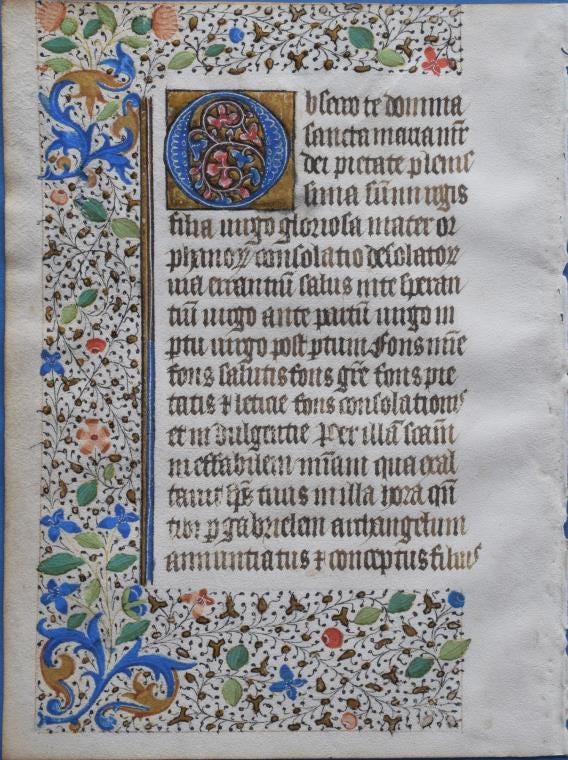 Obsecro te domina
sancta maria mr̄
dei pietate plenis
sima sūmi regis
filia uirgo gloriosa mater or
phanoꝝ consolatio desolatoꝝ
uia errantiū salus in te speran
tiū uirgo ante partū uirgo in
ptu uirgo post ptum Fons mīe
fons salutis fons grē fons pie
tatis ⁊ leticie fons consolationis
et indulgentie Per illā scām
ineffabilem mīam qua exal
tauit sp̄s tuus in illa hora qn̄
tibi p gabrielem archangelum
annuntiatus ⁊ conceptus filius